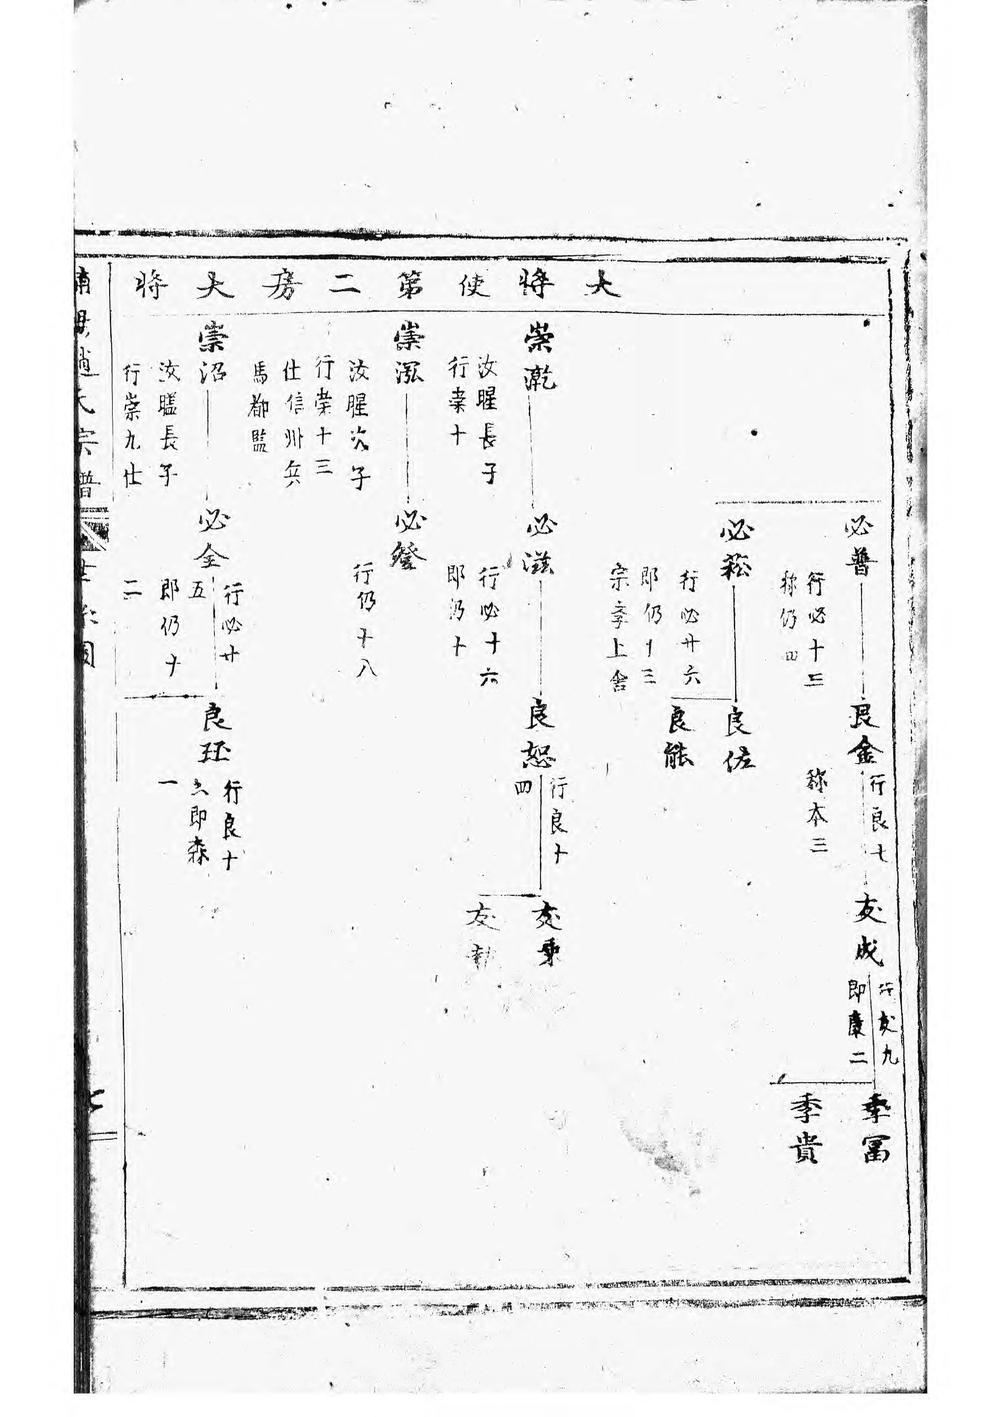 大將使第二房大將
必普
行必十三
称仍四
良金
行良七
称本三
友成
行友九
即康二
季富
季貴
必菘
行必廿六
郎仍十三
宗學上舍
良佐
良能
崇瀚
汝腥長子
行崇十
必滋
行必十六
郎仍十
良恕
行良十
四
友秉
友
崇泓
汝腥次子
行崇十三
仕信州兵
馬都監
必鐙
行仍十八
崇沼
汝𦡱長子
行崇九仕
必金
行必廿
五
郎仍十
二
良珏
行良十
亖即森
一
趙氏宗譜
世系圖